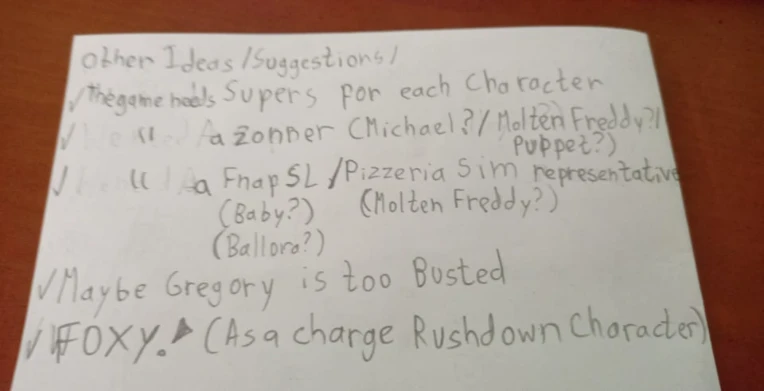 Other Ideas/Suggestions/
✓The game needs Supers for each Character
✓ " a zonner (Michael?/Molten Freddy?/
Puppet?)
✓ " a Fnap SL/Pizzeria Sim representative
(Baby?) (Molten Freddy?)
(Ballora?)
✓Maybe Gregory is too Busted
✓FOXY. (As a charge Rushdown Character)